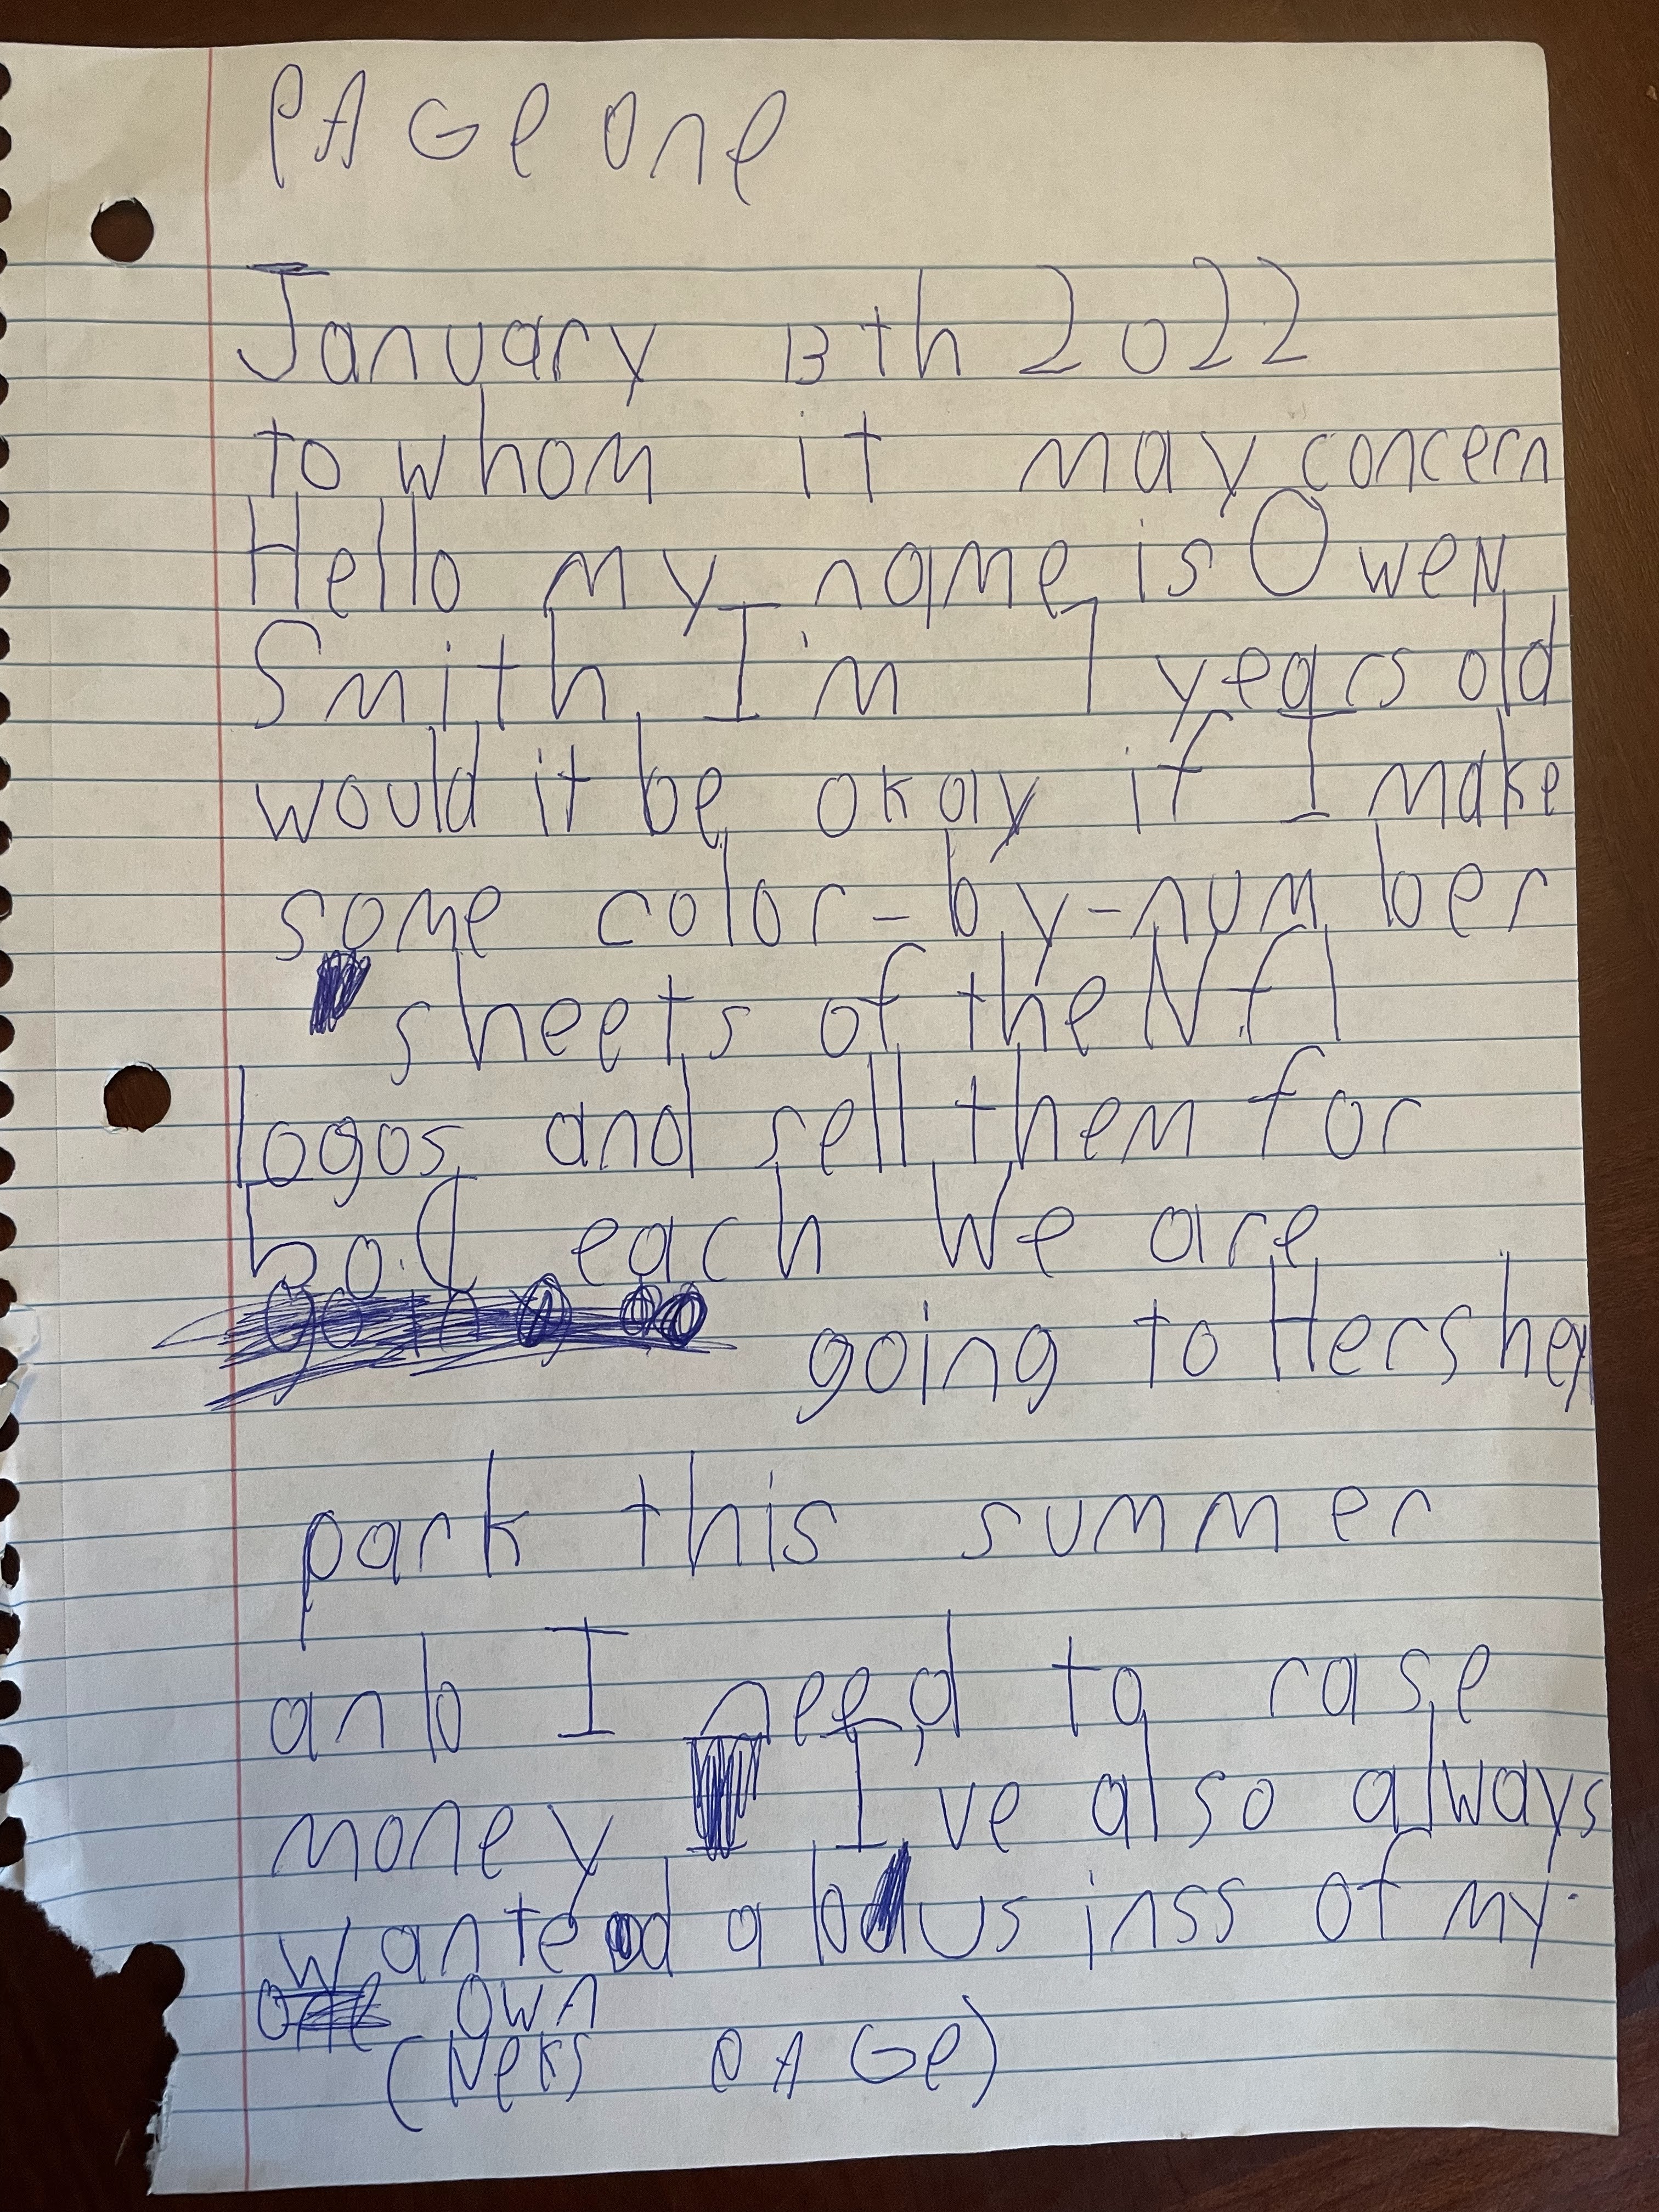 PAGe One
January 13th 2022
to whom it may concern
Hello my name is Owen
Smith I'm 7 years old
would it be okay if I make
some color-by-number
sheets of the Nfl
logos and sell them for
50.₵ each We are
going to Hershey
park this summer
anb I need to rase
money I've also always
wanted a businss of my
own
(Neks PAGe)